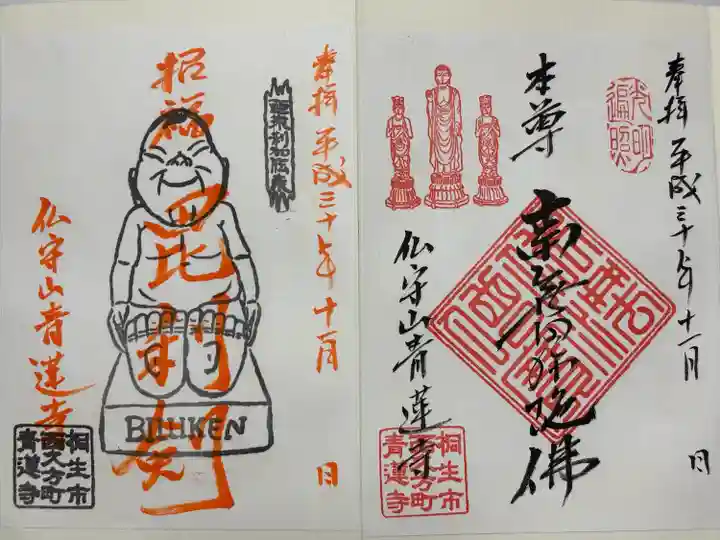 奉拝 平成三十年十一月 日
光明
遍照
本尊 南無阿弥陀佛
仏守山青蓮寺
桐生市
西久方町
青蓮寺
奉拝 平成三十年十一月 日
招福 毘利
BILLIKEN
仏守山青蓮寺
桐生市
西久方町
青蓮寺